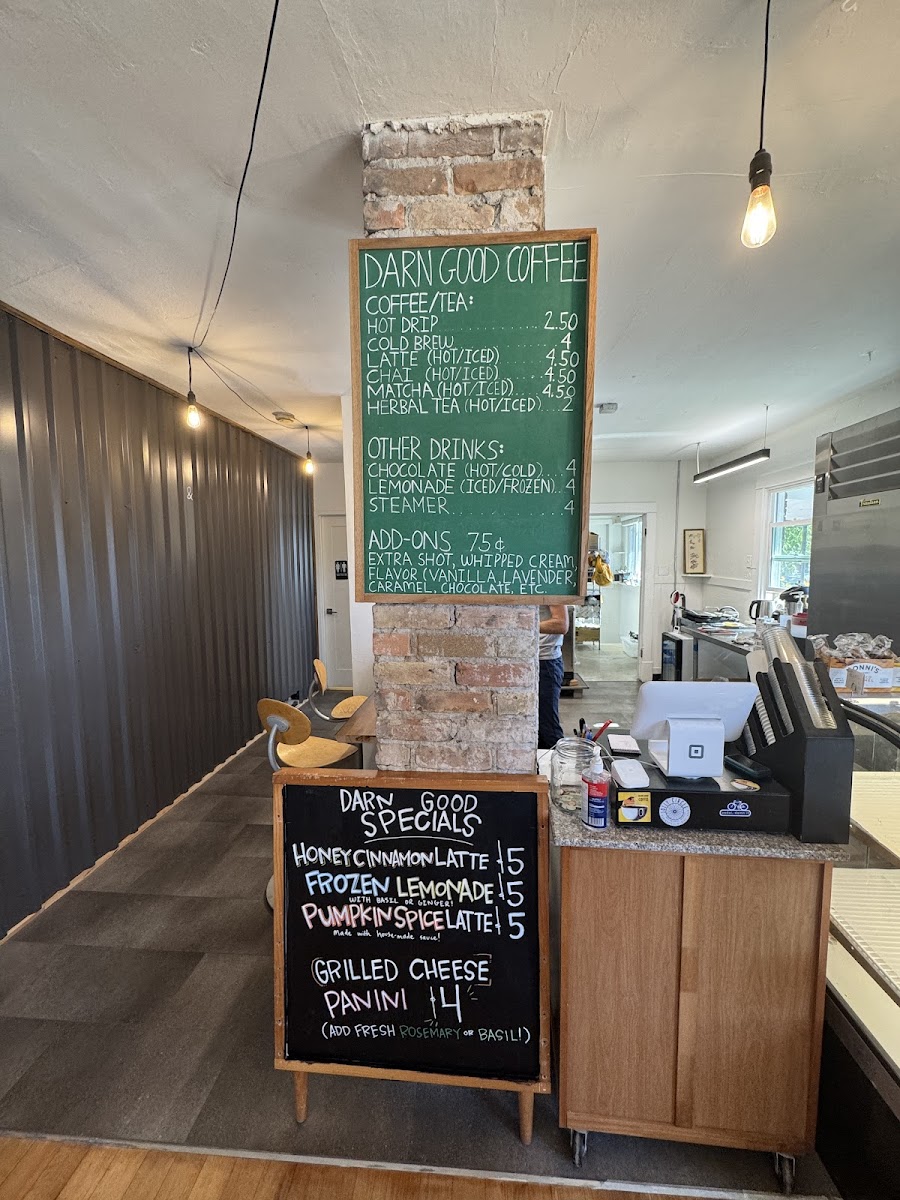 DARN GOOD COFFEE
COFFEE/TEA:
HOT DRIP .................. 2.50
COLD BREW ............... 4
LATTE (HOT/ICED) ....... 4.50
CHAI (HOT/ICED) ....... 4.50
MATCHA (HOT/ICED).... 4.50
HERBAL TEA (HOT/ICED)... 2
OTHER DRINKS:
CHOCOLATE (HOT/COLD)... 4
LEMONADE (ICED/FROZEN).. 4
STEAMER ................ 4
ADD-ONS 75¢
EXTRA SHOT, WHIPPED CREAM,
FLAVOR (VANILLA, LAVENDER,
CARAMEL, CHOCOLATE, ETC.
&
ONNI'S
DARN GOOD
SPECIALS
HONEY CINNAMON LATTE $5
FROZEN LEMONADE $5
WITH BASIL OR GINGER!
PUMPKIN SPICE LATTE $5
made with house-made sauce!
GRILLED CHEESE
PANINI $4
(ADD FRESH ROSEMARY OR BASIL!)